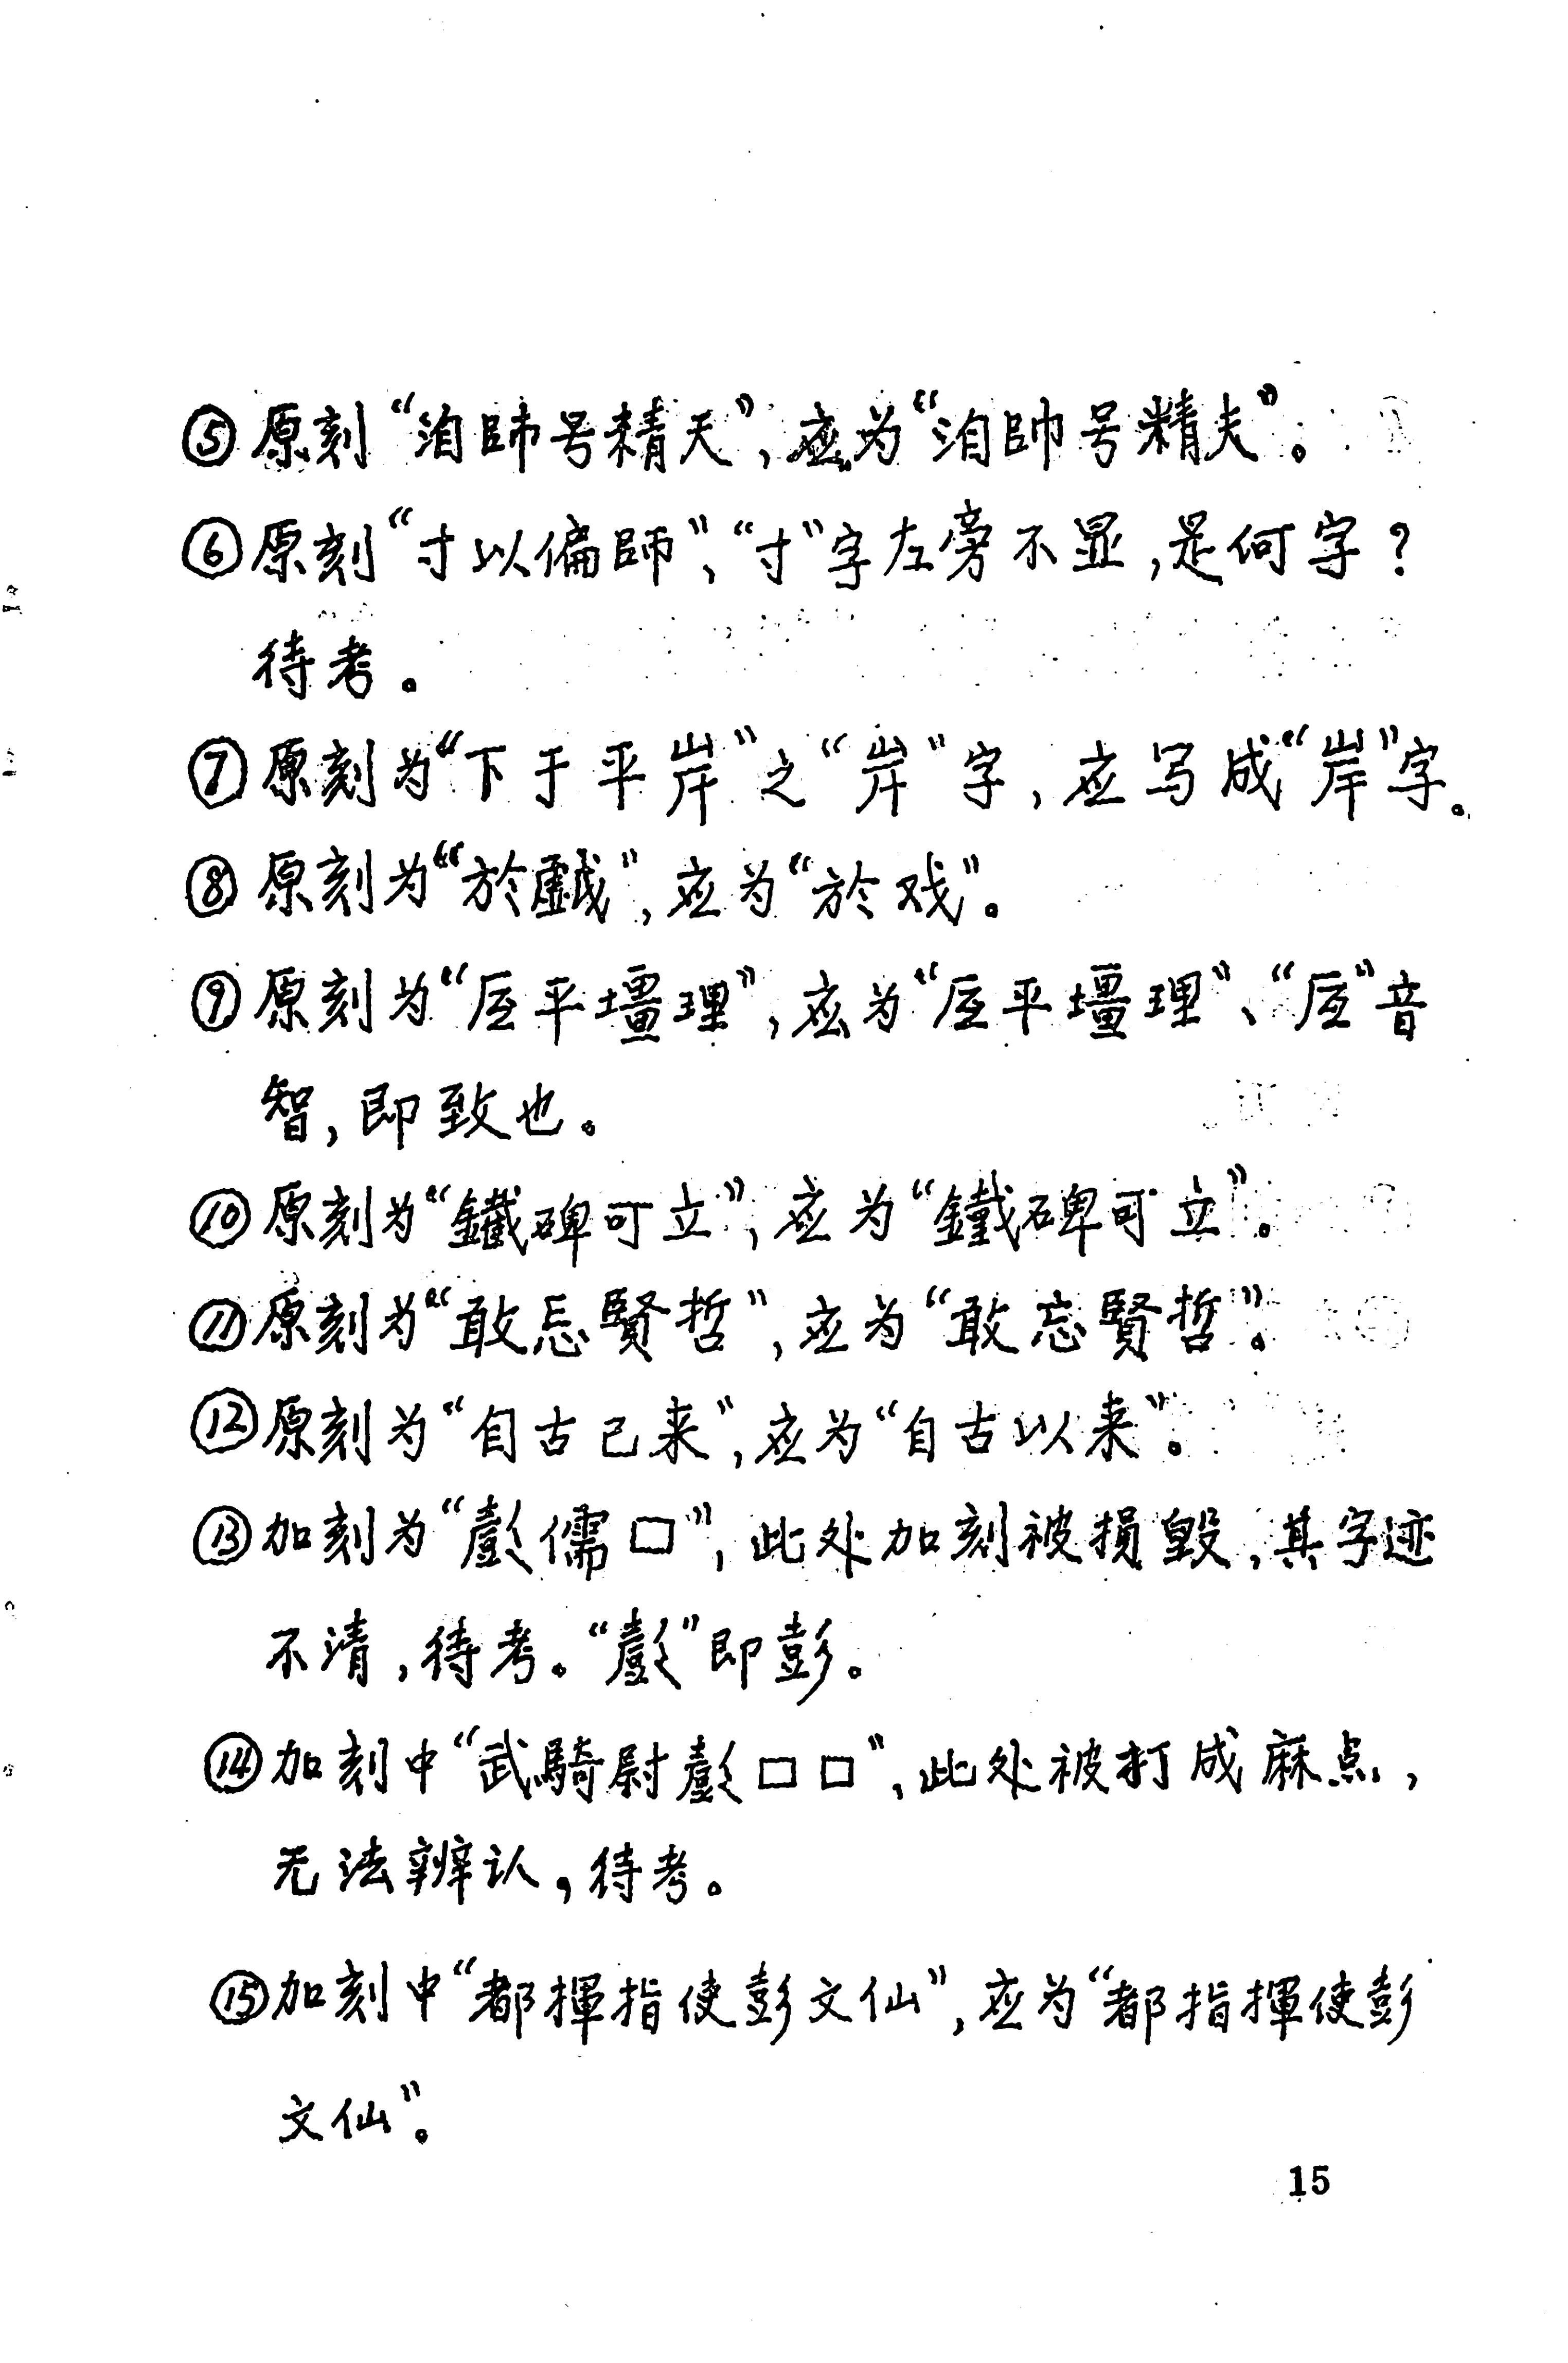 ⑤原刻“洎師号精天”,应为“洎帥号精夫”。
⑥原刻“寸以偏師”、“寸”字左旁不显,是何字?
待考。
⑦原刻为“下于平岸”之“岸”字,应写成“岸”字。
⑧原刻为“於戯”,应为“於戏”。
⑨原刻为“厔平壃理”,应为“厔平壃理”、“厔”音
智,即致也。
⑩原刻为“鐵碑可立”,应为“鐵碑可立”。
⑪原刻为“敢忘賢哲”,应为“敢忘賢哲”。
⑫原刻为“自古已来”,应为“自古以来”。
⑬加刻为“彭儒口”,此处加刻被損毁,其字迹
不清,待考。“彭”即彭。
⑭加刻中“武騎尉彭口口”,此处被打成麻点,
无法辨认,待考。
⑮加刻中“都揮指使彭文仙”,应为“都指揮使彭
文仙”。
15